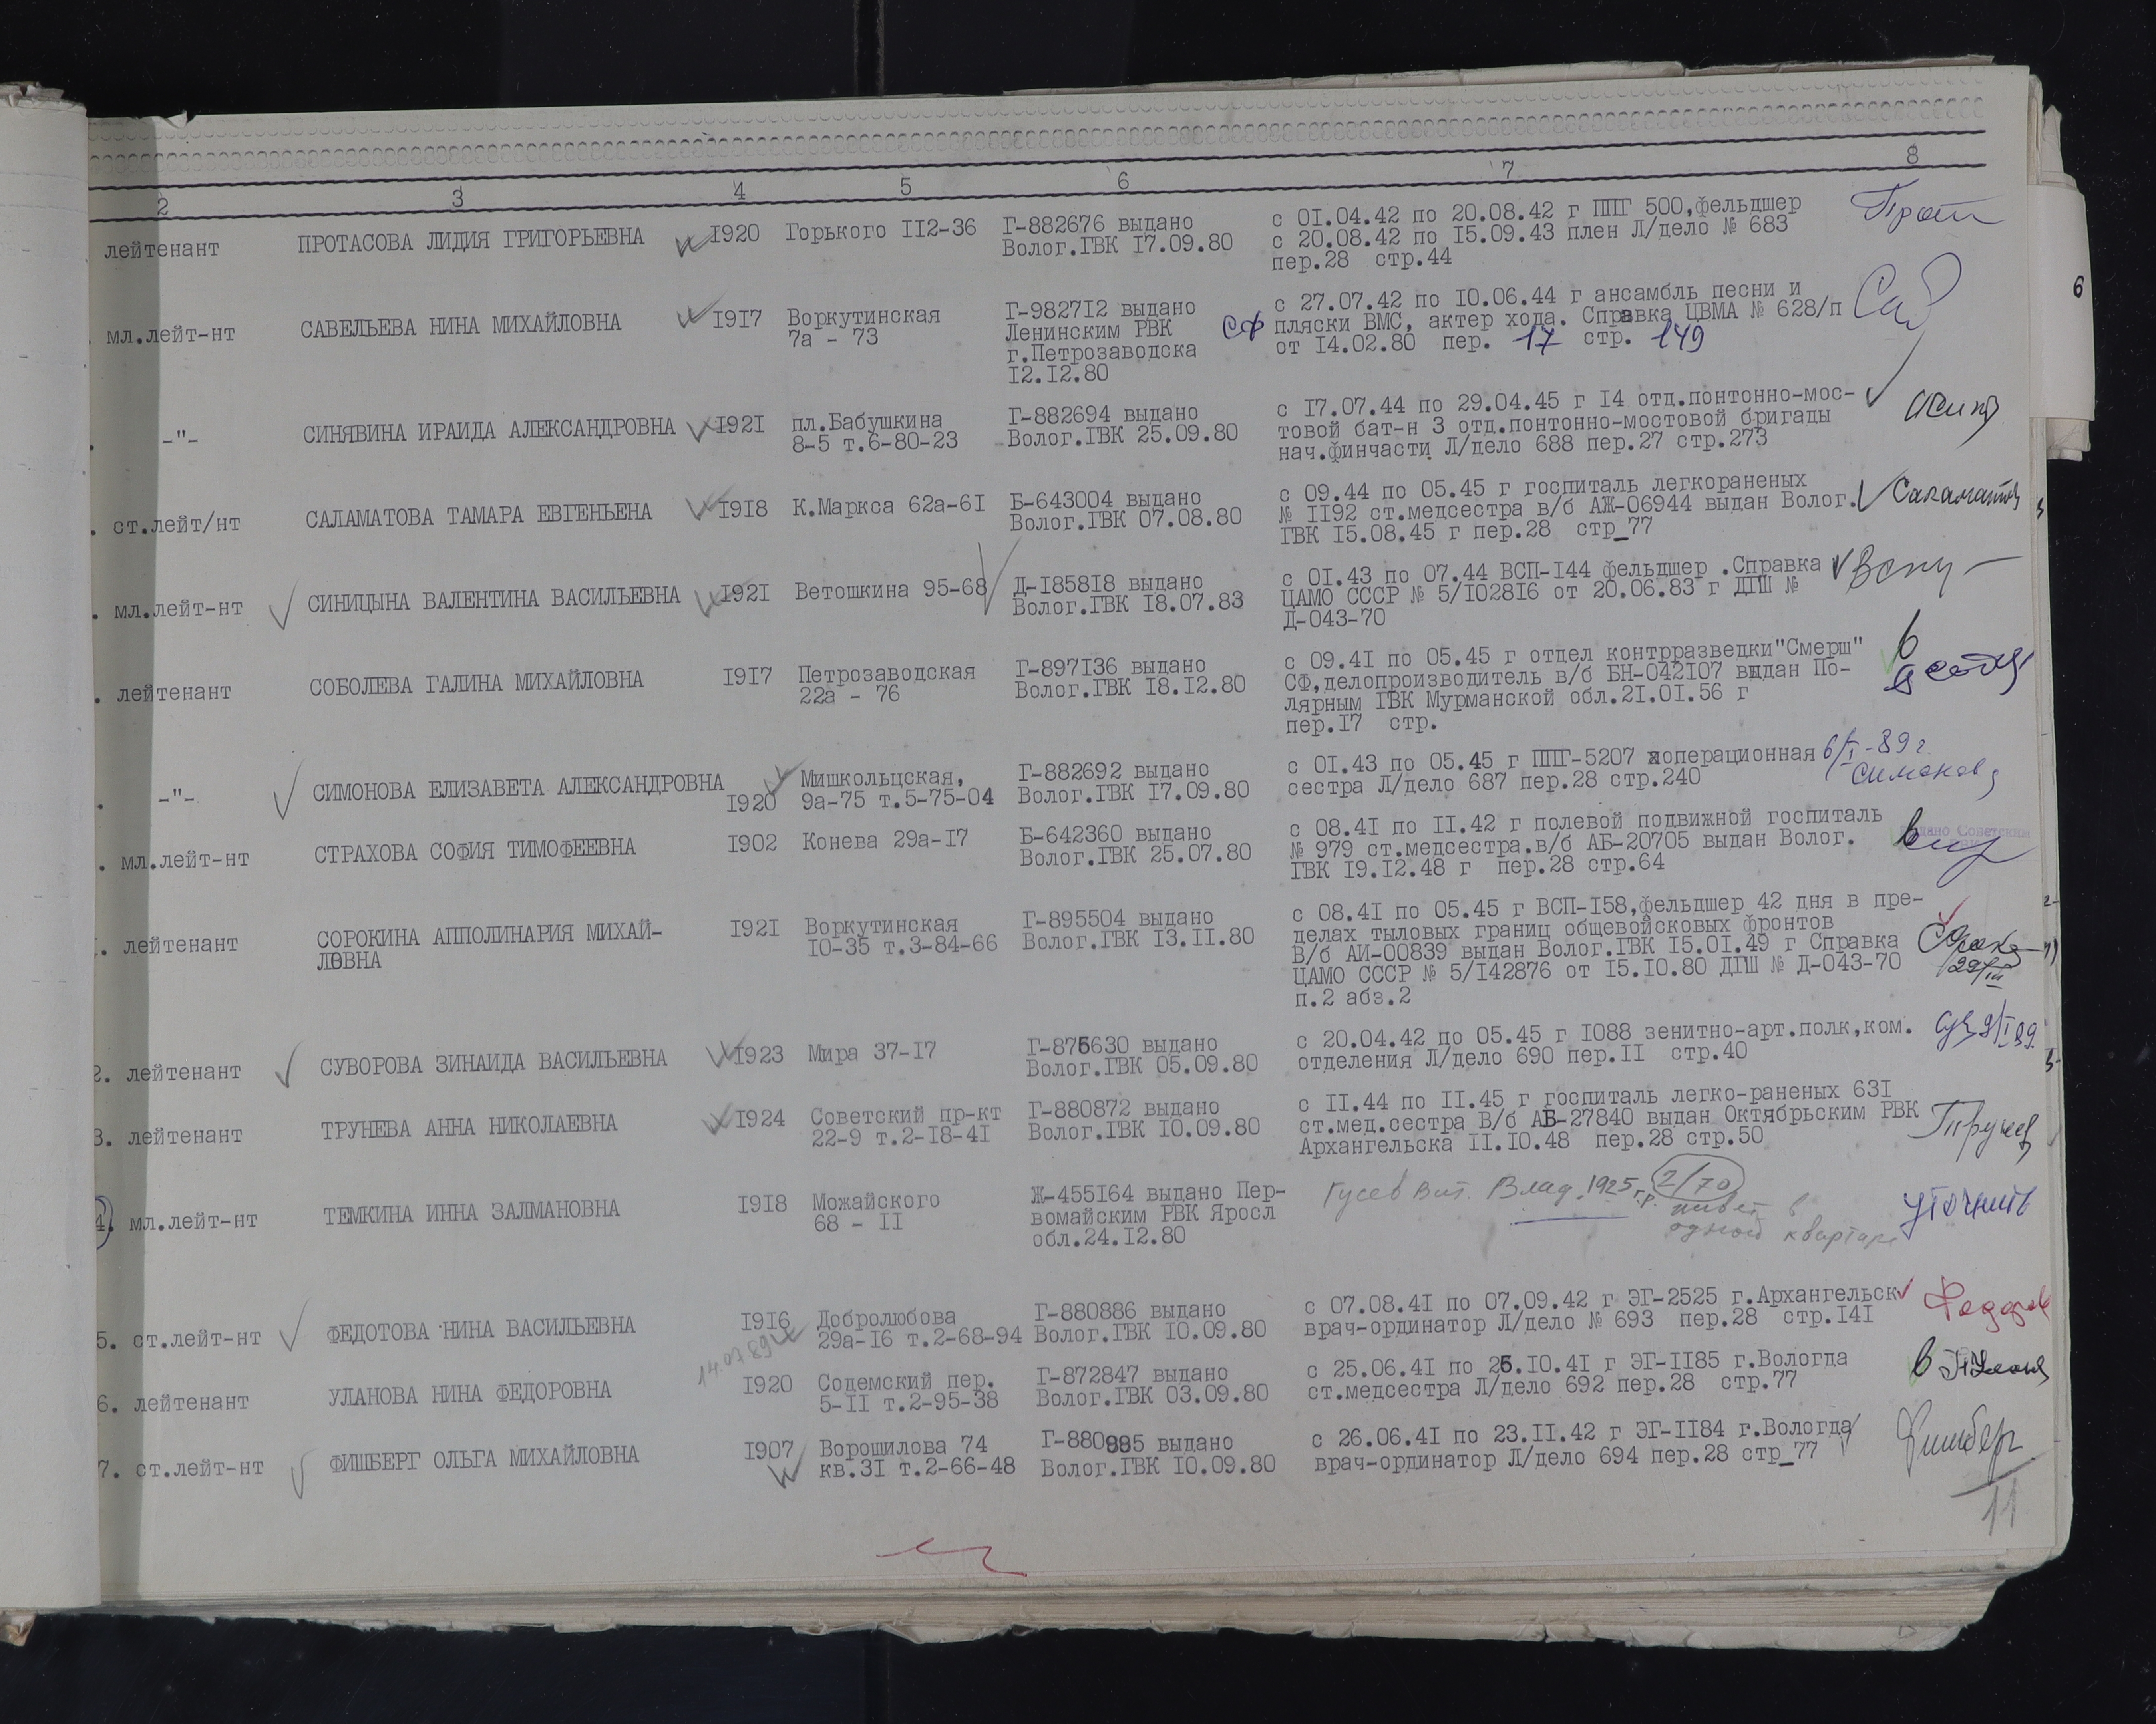 2 3 4 5 6 7 8
лейтенант ПРОТАСОВА ЛИДИЯ ГРИГОРЬЕВНА I920 Горького II2-36 Г-882676 выдано с 0I.04.42 по 20.08.42 г ППГ 500,фельдшер
Волог.ГВК I7.09.80 с 20.08.42 по I5.09.43 плен Л/дело № 683
пер.28 стр.44
мл.лейт-нт САВЕЛЬЕВА НИНА МИХАЙЛОВНА I9I7 Воркутинская Г-9827I2 выдано с 27.07.42 по I0.06.44 г ансамбль песни и
7а - 73 Ленинским РВК СФ пляски ВМС, актер хода. Справка ЦВМА № 628/п
г.Петрозаводска от I4.02.80 пер. 17 стр. 149
I2.I2.80
-"- СИНЯВИНА ИРАИДА АЛЕКСАНДРОВНА I92I пл.Бабушкина Г-882694 выдано с I7.07.44 по 29.04.45 г I4 отд.понтонно-мос-
8-5 т.6-80-23 Волог.ГВК 25.09.80 товой бат-н 3 отд.понтонно-мостовой бригады
нач.финчасти Л/дело 688 пер.27 стр.273
ст.лейт/нт САЛАМАТОВА ТАМАРА ЕВГЕНЬЕНА I9I8 К.Маркса 62а-6I Б-643004 выдано с 09.44 по 05.45 г госпиталь легкораненых Саламатов
Волог.ГВК 07.08.80 № II92 ст.медсестра в/б АЖ-06944 выдан Волог.
ГВК I5.08.45 г пер.28 стр_77
мл.лейт-нт СИНИЦЫНА ВАЛЕНТИНА ВАСИЛЬЕВНА I92I Ветошкина 95-68 Д-I858I8 выдано с 0I.43 по 07.44 ВСП-I44 фельдшер .Справка
Волог.ГВК I8.07.83 ЦАМО СССР № 5/I028I6 от 20.06.83 г ДГШ №
Д-043-70
лейтенант СОБОЛЕВА ГАЛИНА МИХАЙЛОВНА I9I7 Петрозаводская Г-897I36 выдано с 09.4I по 05.45 г отдел контрразведки"Смерш"
22а - 76 Волог.ГВК I8.I2.80 СФ,делопроизводитель в/б БН-042I07 выдан По-
лярным ГВК Мурманской обл.2I.0I.56 г
пер.I7 стр.
-"- СИМОНОВА ЕЛИЗАВЕТА АЛЕКСАНДРОВНА Мишкольцская, Г-882692 выдано с 0I.43 по 05.45 г ППГ-5207 операционная 6/I-89г.
I920 9а-75 т.5-75-04 Волог.ГВК I7.09.80 сестра Л/дело 687 пер.28 стр.240 Симонов
мл.лейт-нт СТРАХОВА СОФИЯ ТИМОФЕЕВНА I902 Конева 29а-I7 Б-642360 выдано с 08.4I по II.42 г полевой подвижной госпиталь
Волог.ГВК 25.07.80 № 979 ст.медсестра.в/б АБ-20705 выдан Волог.
ГВК I9.I2.48 г пер.28 стр.64
лейтенант СОРОКИНА АППОЛИНАРИЯ МИХАЙ- I92I Воркутинская Г-895504 выдано с 08.4I по 05.45 г ВСП-I58,фельдшер 42 дня в пре-
ЛОВНА I0-35 т.3-84-66 Волог.ГВК I3.II.80 делах тыловых границ общевойсковых фронтов
В/б АИ-00839 выдан Волог.ГВК I5.0I.49 г Справка
ЦАМО СССР № 5/I42876 от I5.I0.80 ДГШ № Д-043-70
п.2 абз.2
2. лейтенант СУВОРОВА ЗИНАИДА ВАСИЛЬЕВНА I923 Мира 37-I7 Г-875630 выдано с 20.04.42 по 05.45 г I088 зенитно-арт.полк,ком.
Волог.ГВК 05.09.80 отделения Л/дело 690 пер.II стр.40
3. лейтенант ТРУНЕВА АННА НИКОЛАЕВНА I924 Советский пр-кт Г-880872 выдано с II.44 по II.45 г госпиталь легко-раненых 63I
22-9 т.2-I8-4I Волог.ГВК I0.09.80 ст.мед.сестра В/б АБ-27840 выдан Октябрьским РВК
Архангельска II.I0.48 пер.28 стр.50
4. мл.лейт-нт ТЕМКИНА ИННА ЗАЛМАНОВНА I9I8 Можайского Ж-455I64 выдано Пер- Гусев Вит. Влад. 1925 г.р. 2/70 уточнить
68 - II вомайским РВК Яросл живет в
обл.24.I2.80 одной квартире
5. ст.лейт-нт ФЕДОТОВА НИНА ВАСИЛЬЕВНА I9I6 Добролюбова Г-880886 выдано с 07.08.4I по 07.09.42 г ЭГ-2525 г.Архангельск
14.07.89 29а-I6 т.2-68-94 Волог.ГВК I0.09.80 врач-ординатор Л/дело № 693 пер.28 стр.I4I
6. лейтенант УЛАНОВА НИНА ФЕДОРОВНА I920 Содемский пер. Г-872847 выдано с 25.06.4I по 25.I0.4I г ЭГ-II85 г.Вологда
5-II т.2-95-38 Волог.ГВК 03.09.80 ст.медсестра Л/дело 692 пер.28 стр.77
7. ст.лейт-нт ФИШБЕРГ ОЛЬГА МИХАЙЛОВНА I907 Ворошилова 74 Г-880995 выдано с 26.06.4I по 23.II.42 г ЭГ-II84 г.Вологда Фишберг
кв.3I т.2-66-48 Волог.ГВК I0.09.80 врач-ординатор Л/дело 694 пер.28 стр_77
11
6